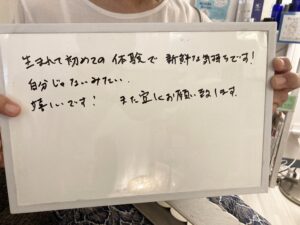 生まれて初めての 体験で 新鮮な気持ちです!
自分じゃないみたい..
嬉しいです! また宜しくお願い致します.